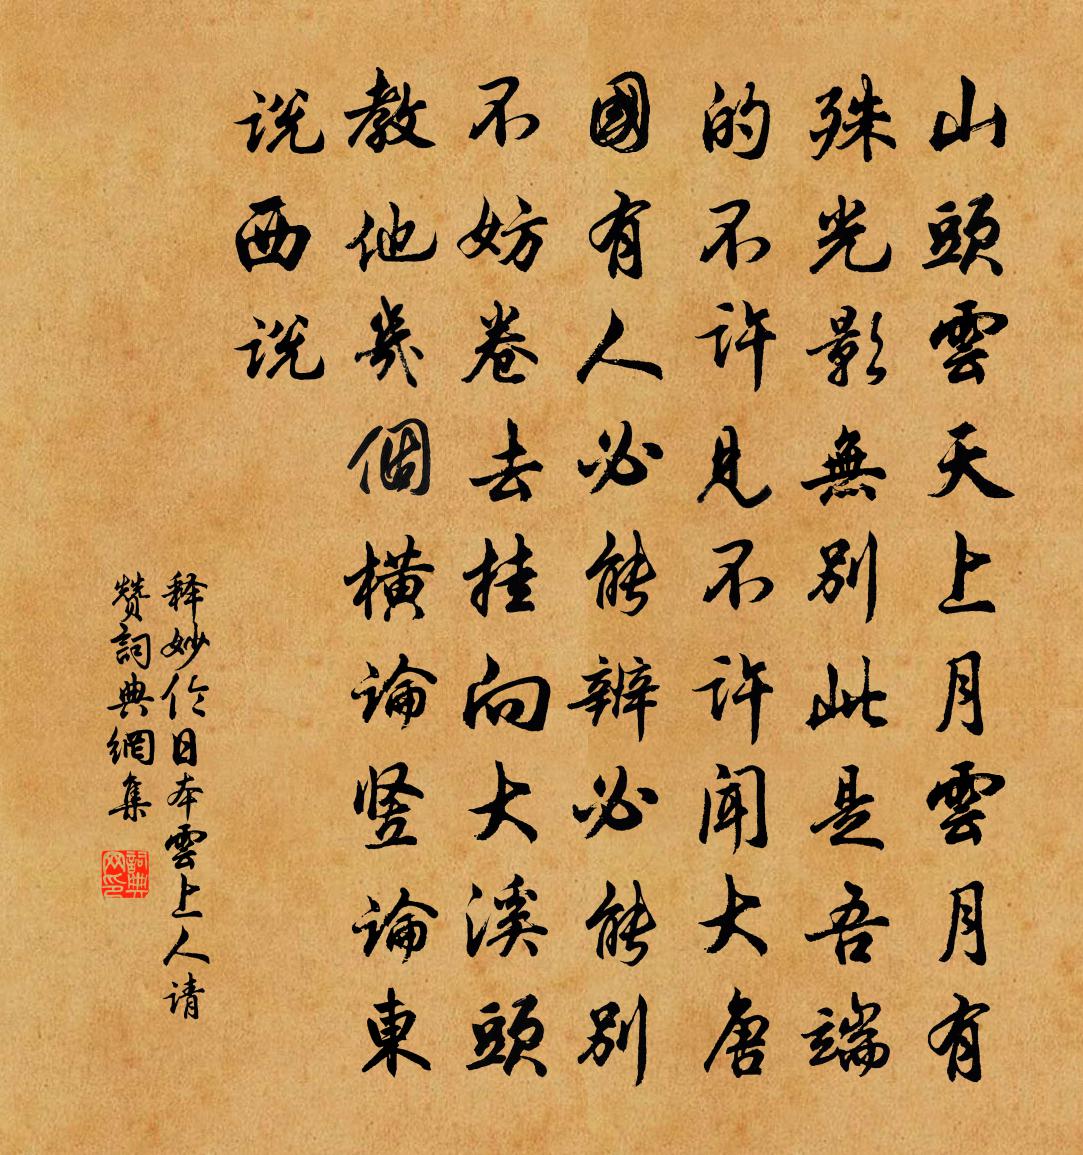 山頭雲天上月雲月有
殊光影無別此是吾端
的不許見不許闻大唐
國有人必能辨必能别
不妨卷去挂向大溪頭
教他幾個橫論竖論東
说西说
释妙伦日本雲上人请
赞詞典網集
詞典網印